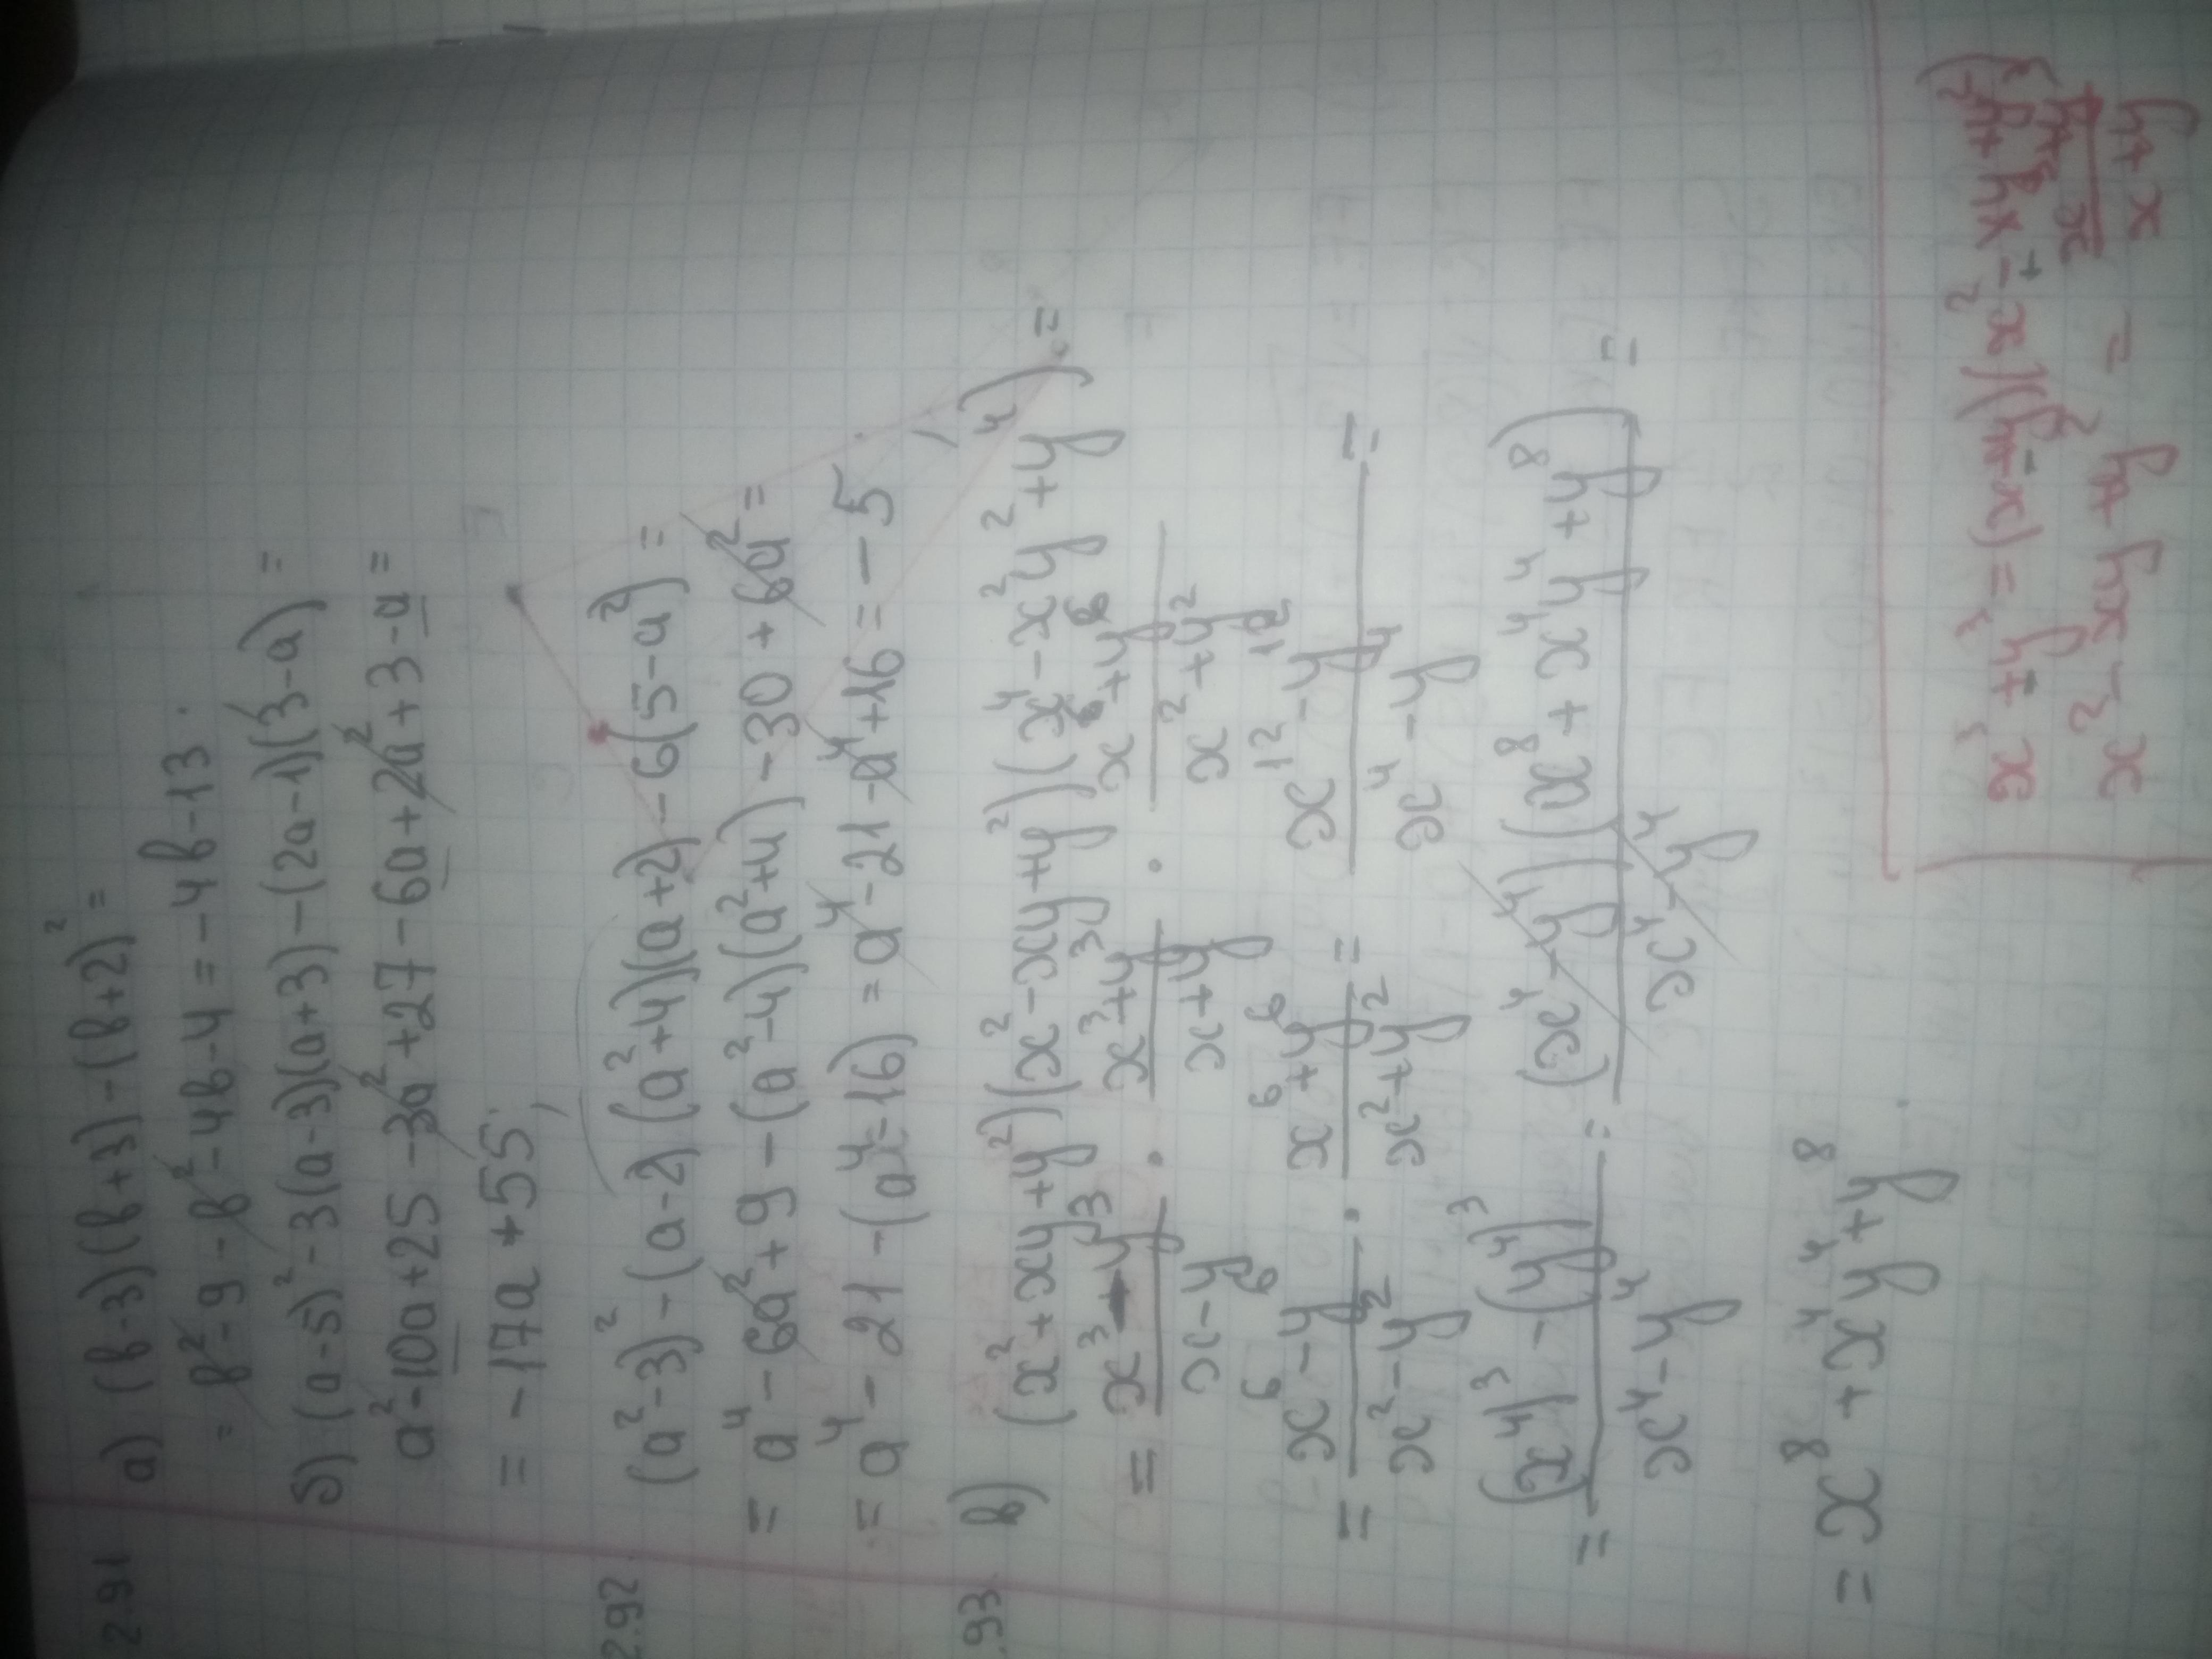 2.91 а) (в-3)(в+3)-(в+2)² =
= в²-9-в²-4в-4 = -4в-13.
б) (a-5)²-3(a-3)(a+3)-(2a-1)(3-a) =
a²-10a+25-3a²+27-6a+2a²+3-a =
= -17a+55;
2.92. (a²-3)²-(a-2)(a²+4)(a+2)-6(5-a²) =
= a⁴-6a²+9-(a²-4)(a²+4)-30+6a² =
= a⁴-21-(a⁴-16) = a⁴-21-a⁴+16 = -5
.93. в) (x²+xy+y²)(x²-xy+y²)(x⁴-x²y²+y⁴) =
= (x³-y³)/(x-y) · (x³+y³)/(x+y) · (x⁶+y⁶)/(x²+y²) =
= (x⁶-y⁶)/(x²-y²) · (x⁶+y⁶)/(x²+y²) = (x¹²-y¹²)/(x⁴-y⁴) =
= ((x⁴)³-(y⁴)³)/(x⁴-y⁴) = (x⁴-y⁴)(x⁸+x⁴y⁴+y⁸)/(x⁴-y⁴) =
= x⁸+x⁴y⁴+y⁸.
x³±y³=(x±y)(x²∓xy+y²)
x²-xy+y² = (x³+y³)/(x+y)